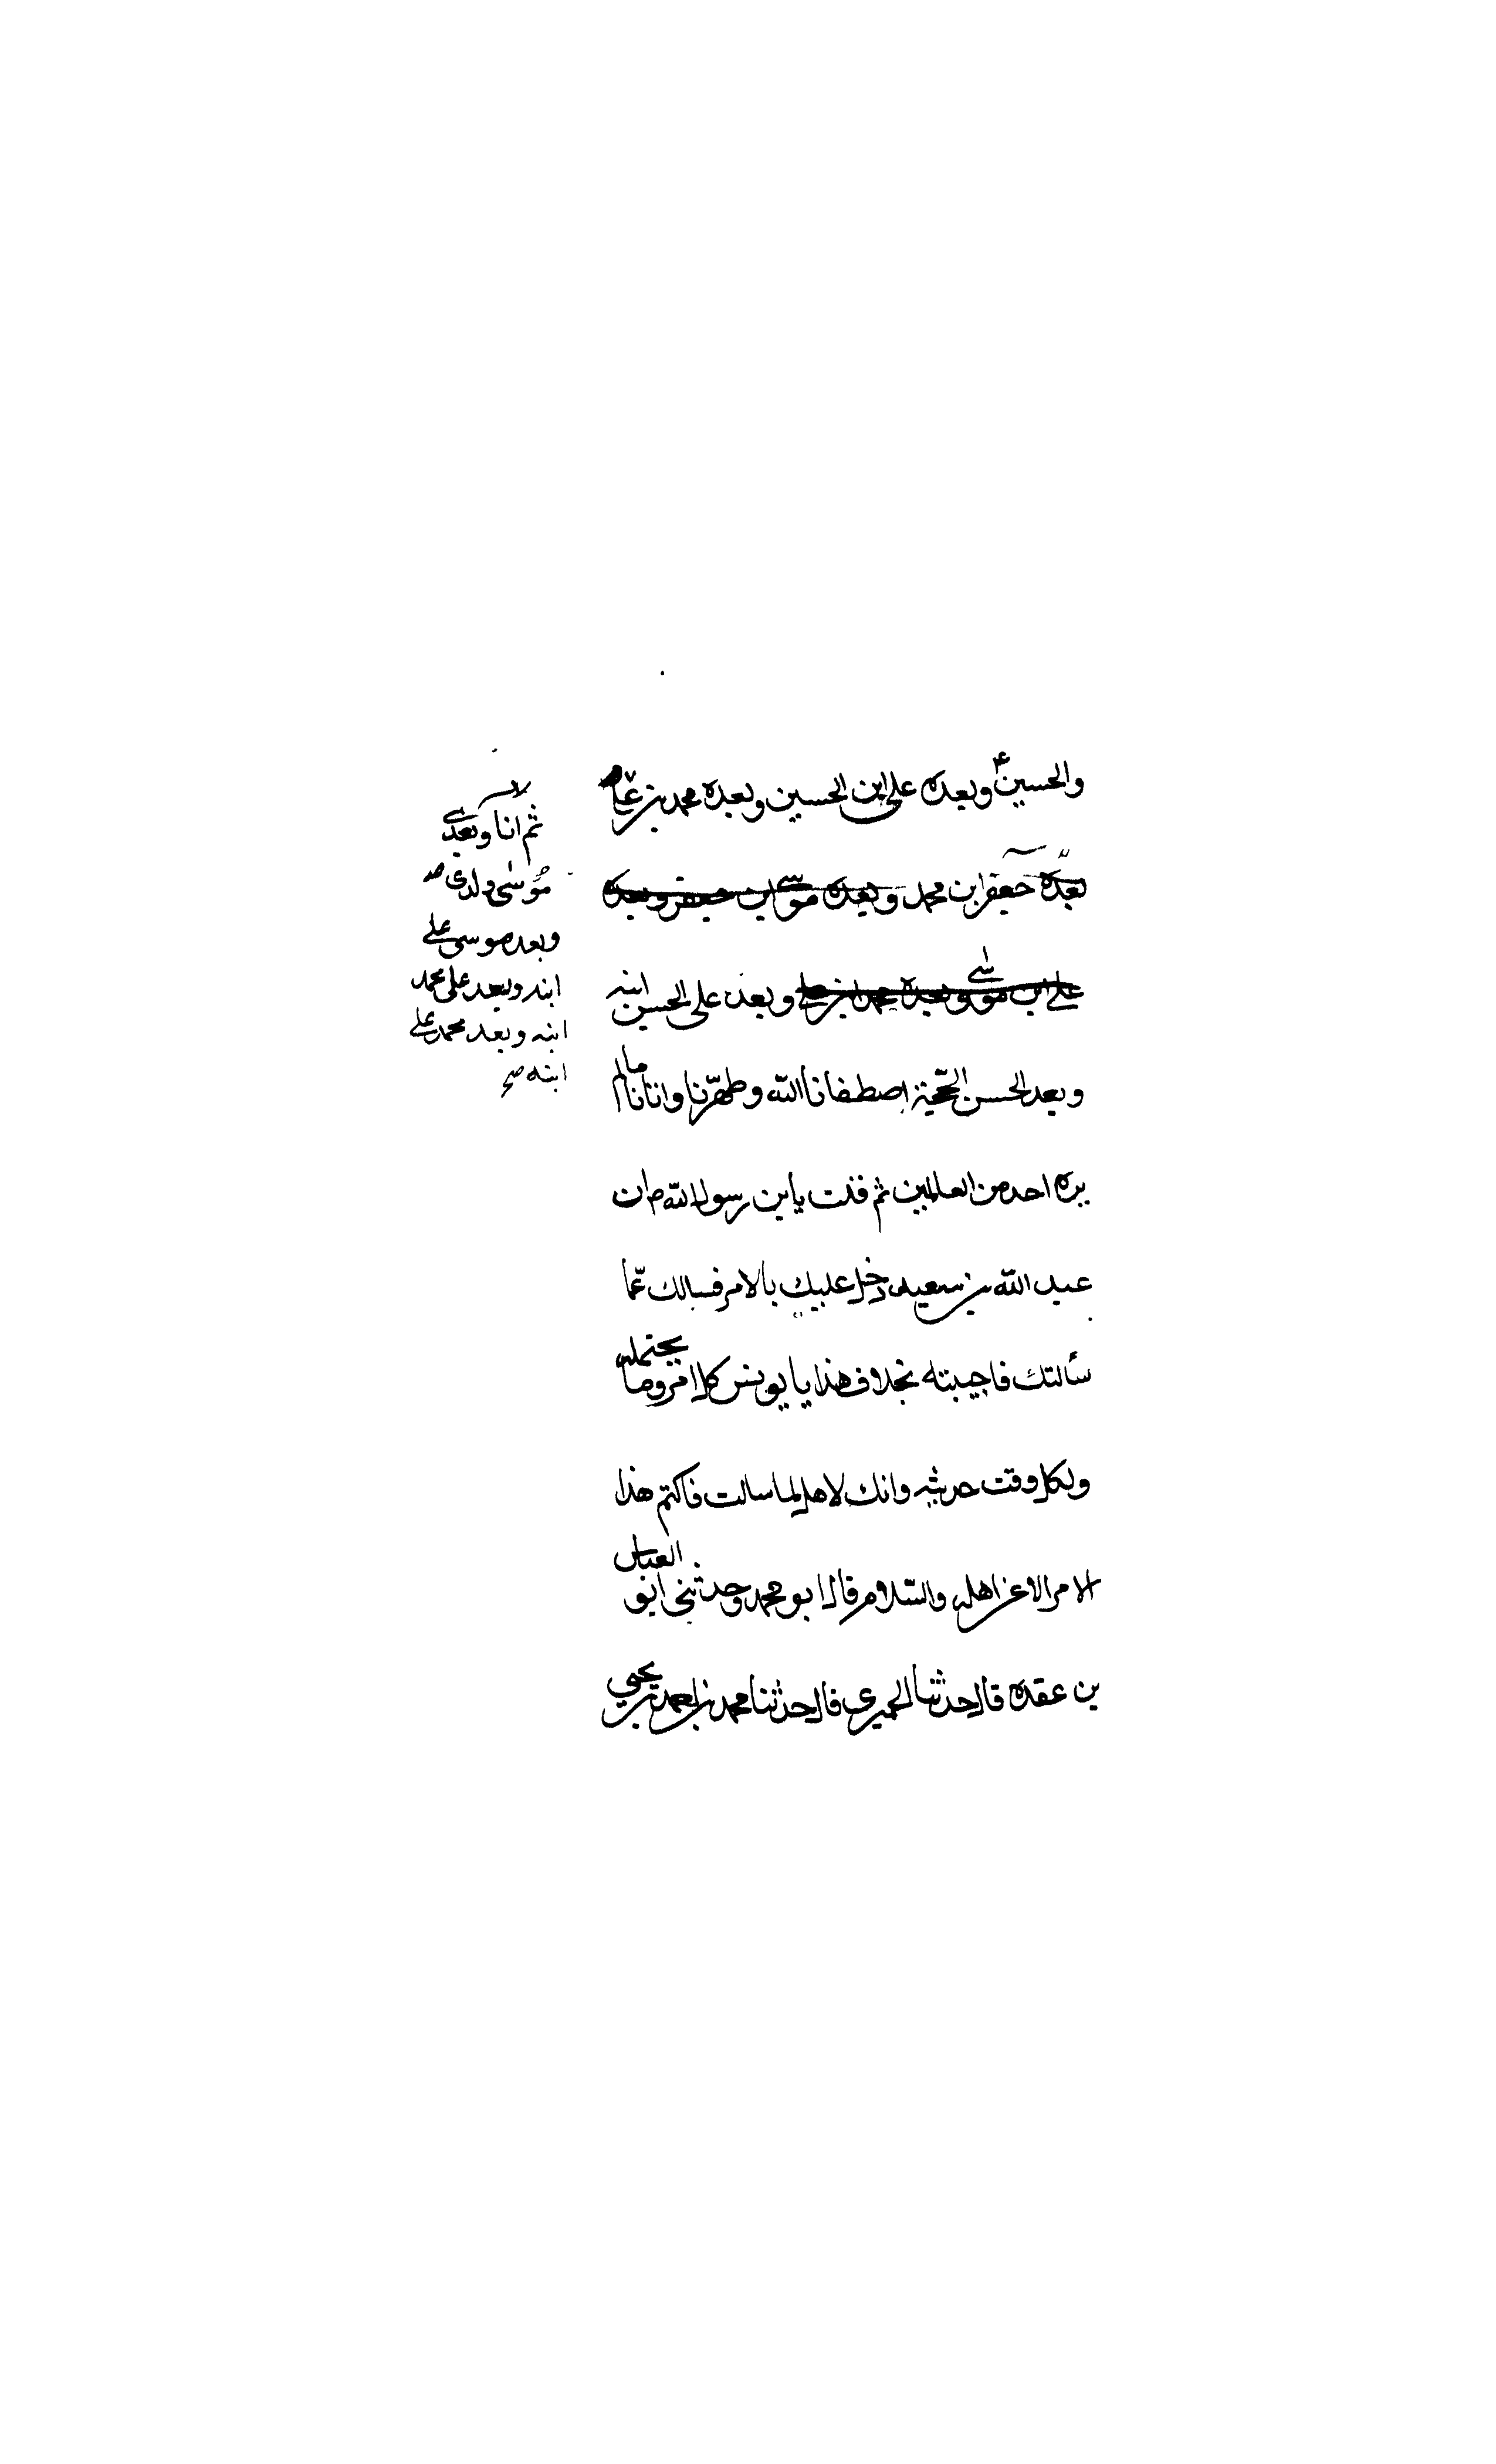 والحسين ع وبعده على ابن الحسين وبعده محمد بن على
بعده جعفر ابن محمد وبعده موسى ابن جعفر وبعده
على ابن موسى وبعده محمد ابن على وبعد على الحسن ابنه
وبعد الحسن الحجّة اصطفانا الله وطهّرنا واتانا ما لم
يره احد من العالمين ثم قلت يا بن رسول الله ص ان
عبد الله بن سعيد دخل عليك بالامر فسالك عمّا
سألتك فاجبته بخلاف هذا يا يونس كل امر وما يحتمله
ولكل وقت حديثه وانك لاهل لما سالت فاكتم هذا
الامر الا عن اهله والسّلام قال ابو محمد وحدثنى ابو العباس
بن عقده قال حدثنا الحميرى قال حدثنا محمد بن احمد بن يحيى
ثم انا وبعدى
موسى ولدى
وبعد موسى على
ابنه وبعد على محمد
ابنه وبعد محمد على
ابنه صح